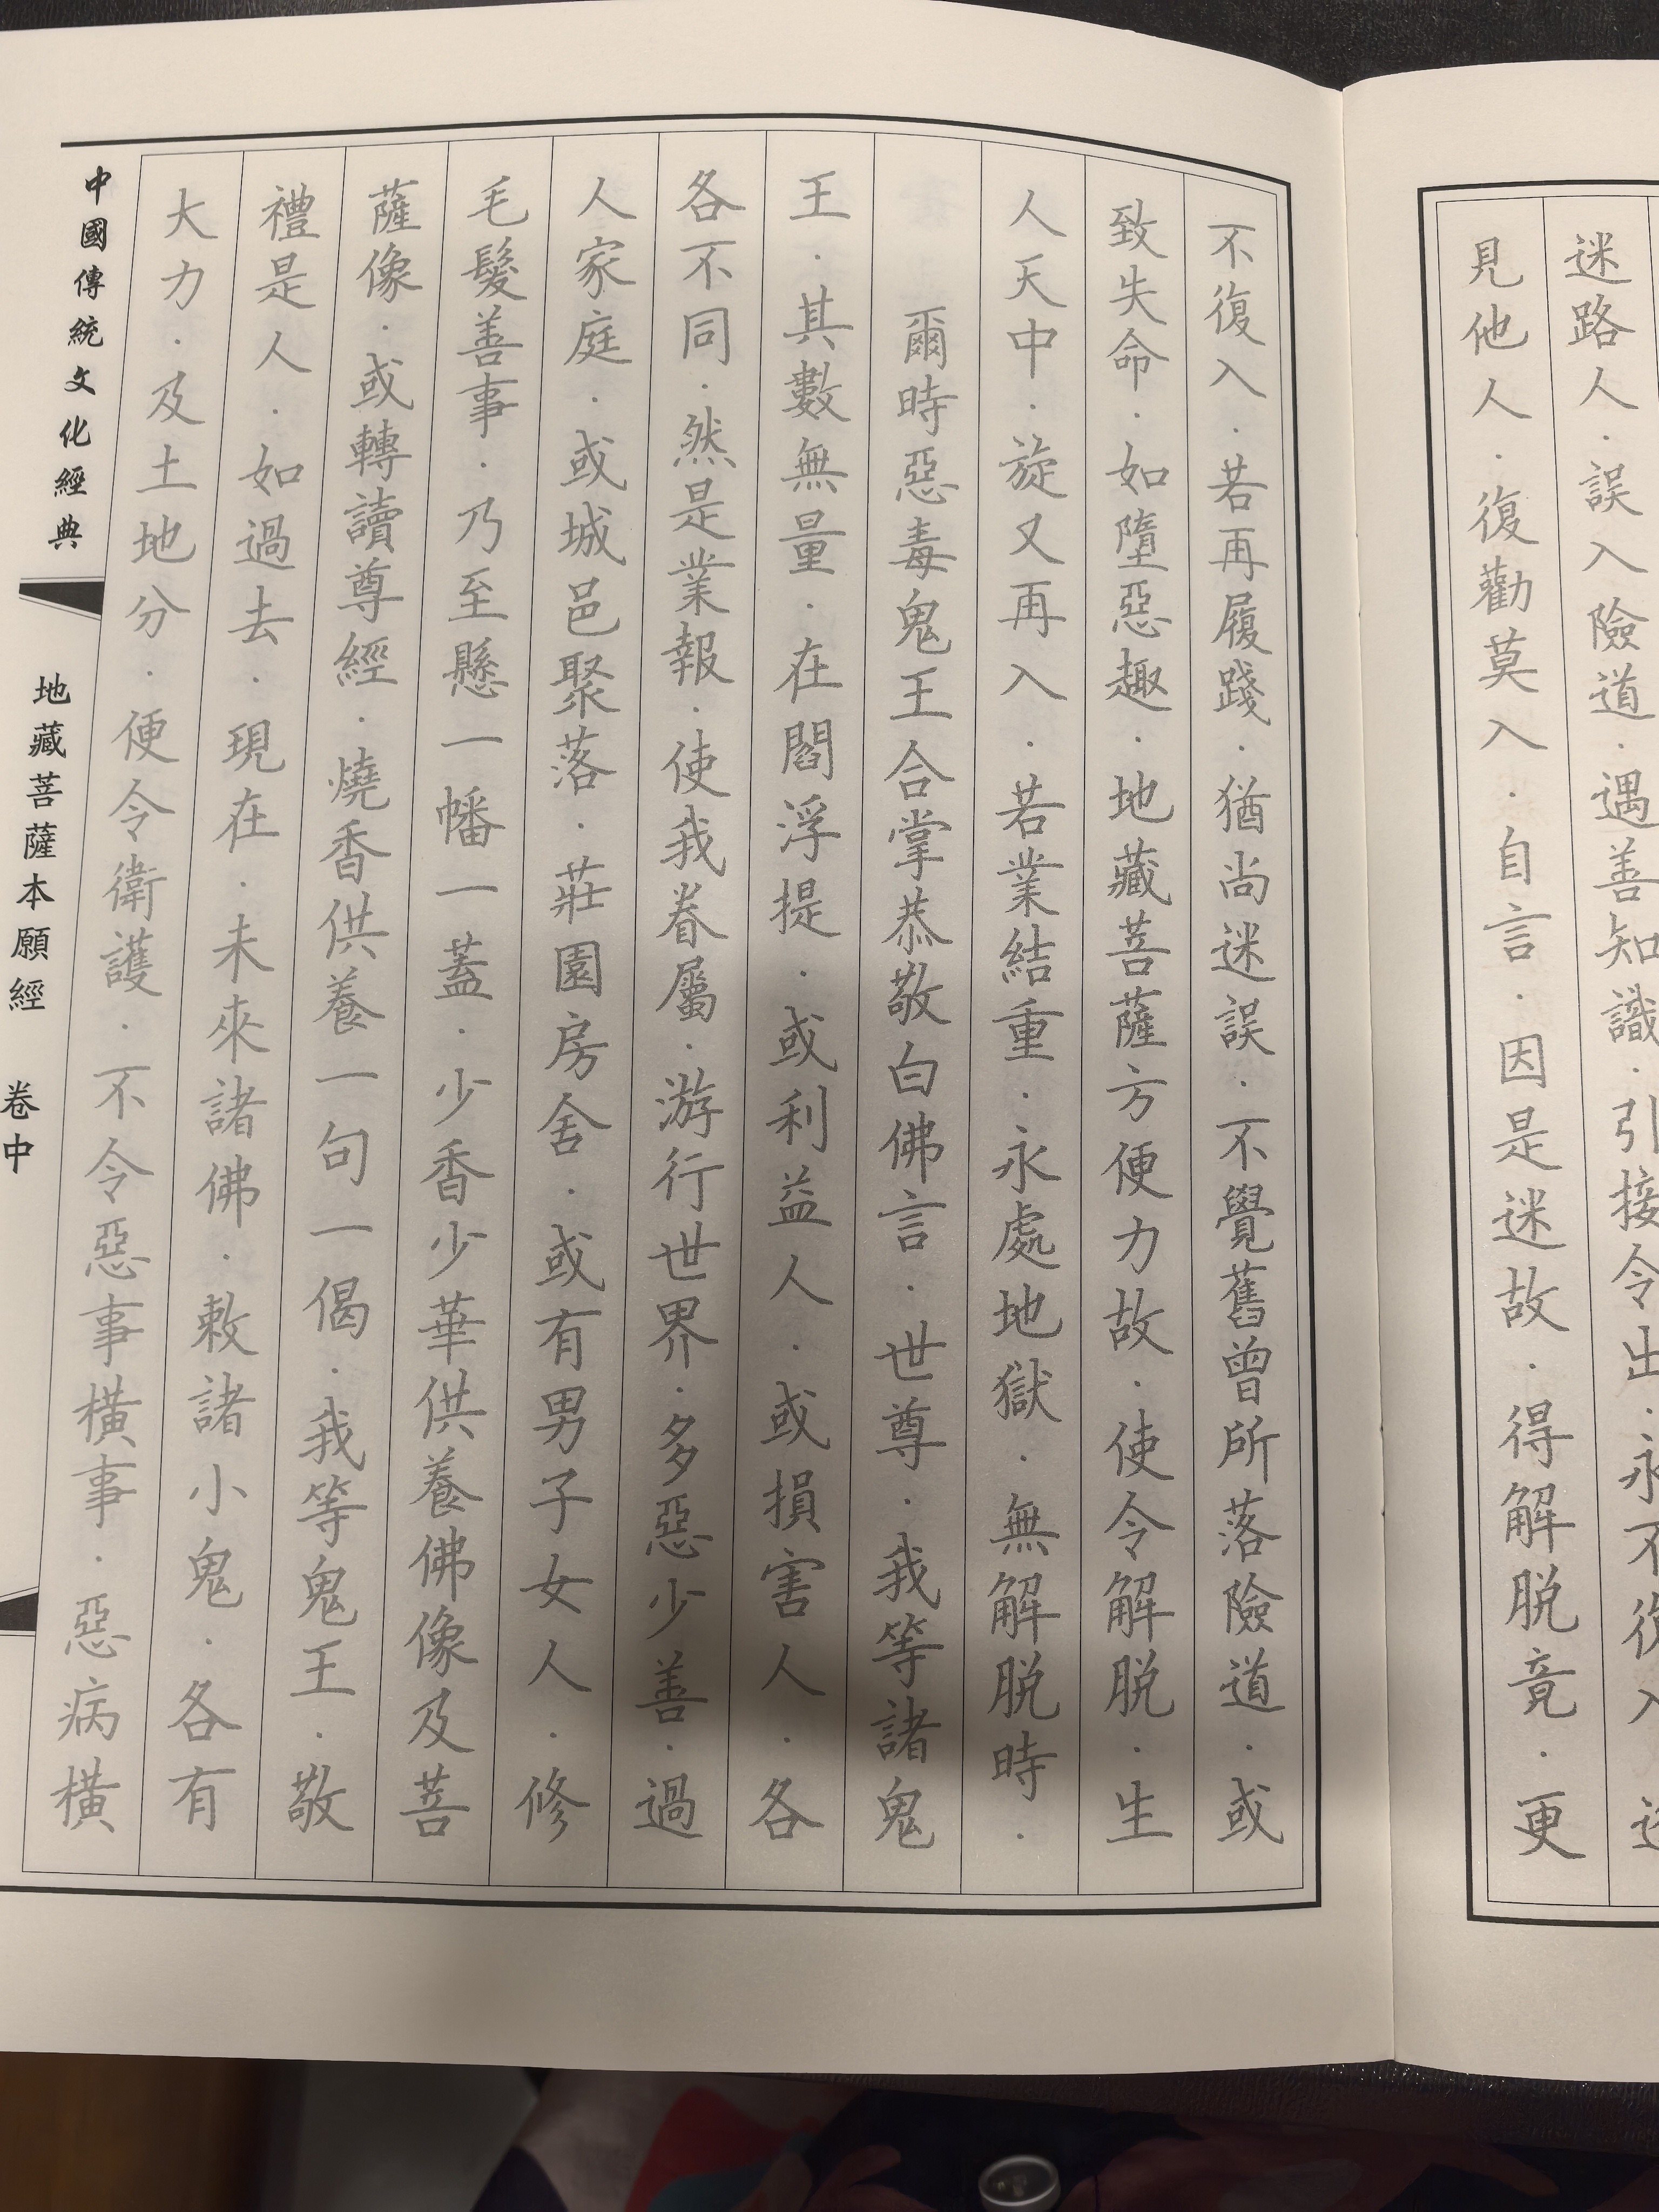 迷路人．誤入險道．遇善知識．引接令出．永不復入
見他人．復勸莫入．自言．因是迷故．得解脫竟．更
不復入．若再履踐．猶尚迷誤．不覺舊曾所落險道．或
致失命．如墮惡趣．地藏菩薩方便力故．使令解脫．生
人天中．旋又再入．若業結重．永處地獄．無解脫時．
爾時惡毒鬼王合掌恭敬白佛言．世尊．我等諸鬼
王．其數無量．在閻浮提．或利益人．或損害人．各
各不同．然是業報．使我眷屬．游行世界．多惡少善．過
人家庭．或城邑聚落．莊園房舍．或有男子女人．修
毛髮善事．乃至懸一幡一蓋．少香少華供養佛像及菩
薩像．或轉讀尊經．燒香供養一句一偈．我等鬼王．敬
禮是人．如過去．現在．未來諸佛．敕諸小鬼．各有
大力．及土地分．便令衛護．不令惡事橫事．惡病橫
中國傳統文化經典
地藏菩薩本願經 卷中